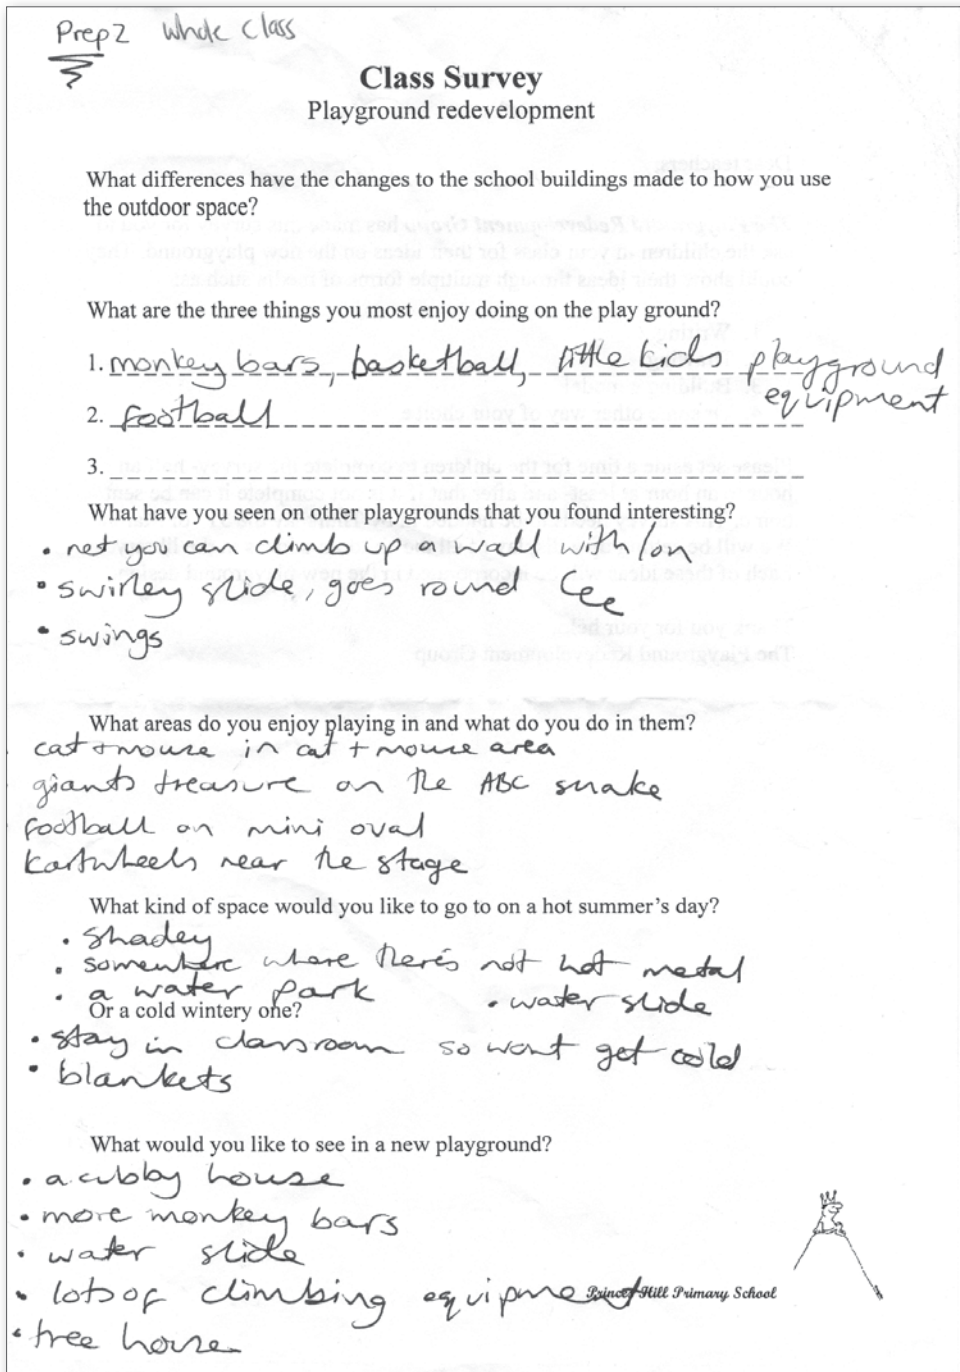 Prep 2 Whole Class
Class Survey
Playground redevelopment
What differences have the changes to the school buildings made to how you use
the outdoor space?
What are the three things you most enjoy doing on the play ground?
1. monkey bars, basketball, little kids playground
equipment
2. football
3.
What have you seen on other playgrounds that you found interesting?
• net you can climb up a wall with/on
• swirley slide, goes round
• swings
What areas do you enjoy playing in and what do you do in them?
cat + mouse in cat + mouse area
giants treasure on the ABC snake
football on mini oval
kartwheels near the stage
What kind of space would you like to go to on a hot summer's day?
• shadey
• somewhere where there's not hot metal
• a water park • water slide
Or a cold wintery one?
• stay in classroom so wont get cold
• blankets
What would you like to see in a new playground?
• a cubby house
• more monkey bars
• water slide
• lots of climbing equipment
Princes Hill Primary School
• tree house